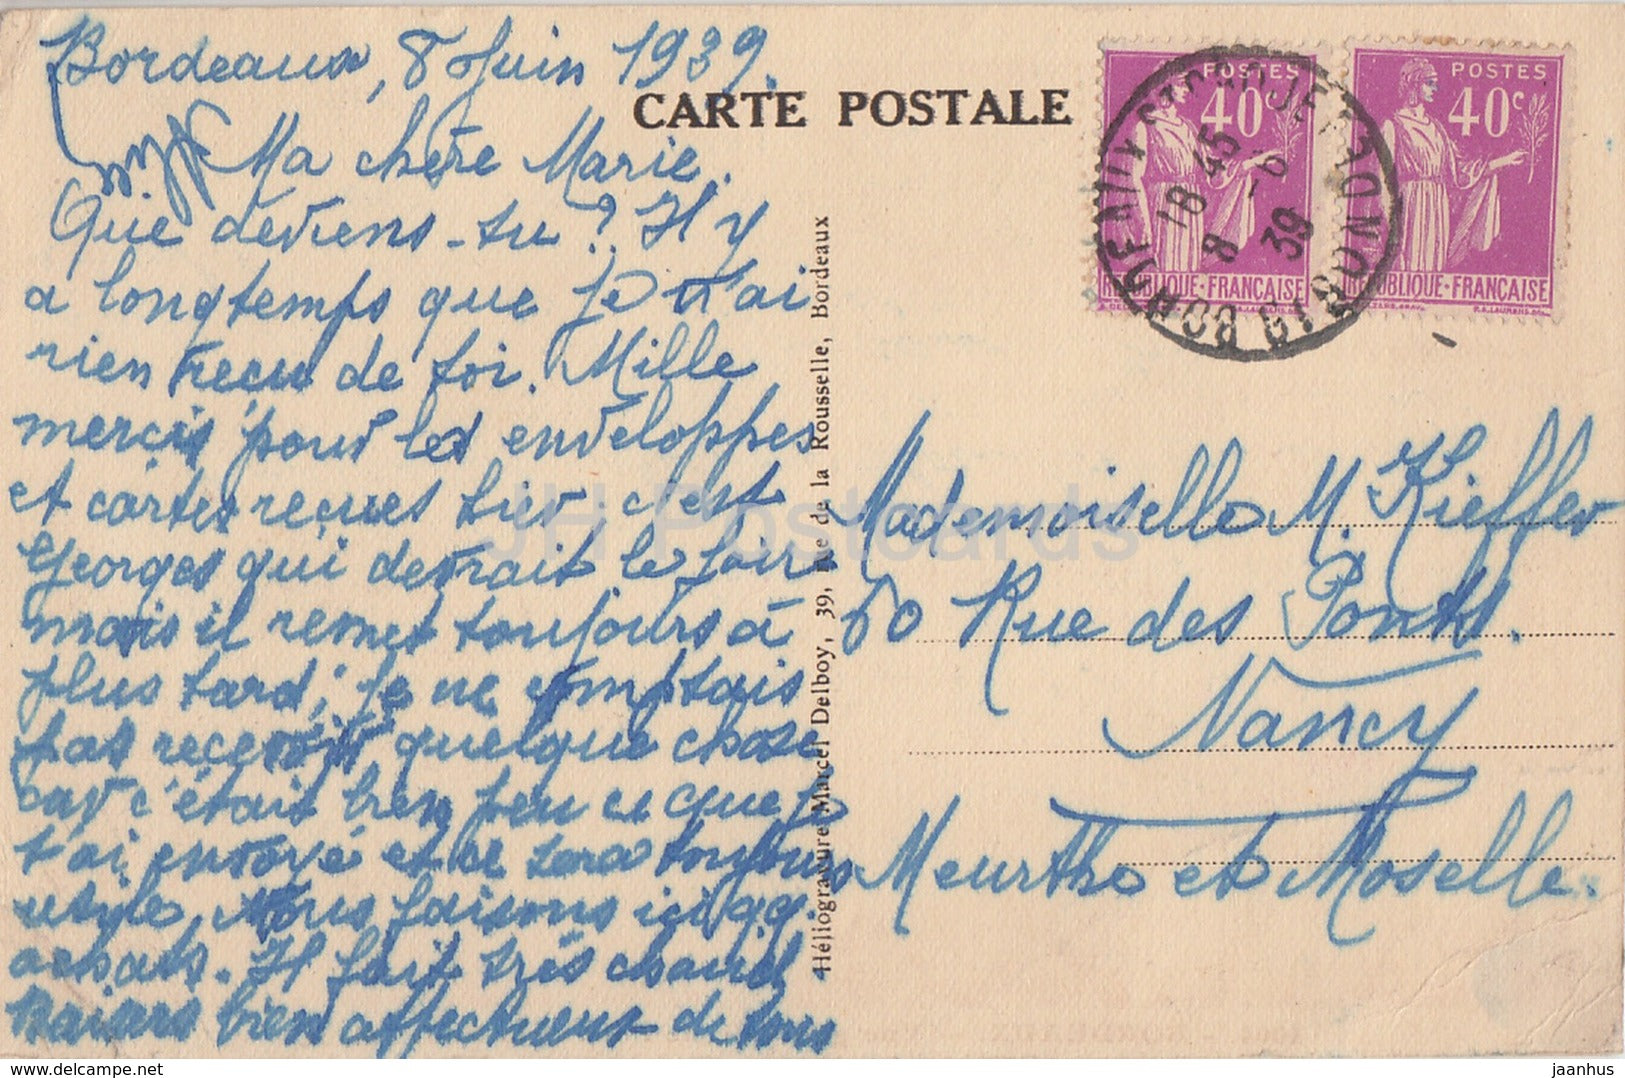 Bordeaux, 8 Juin 1939.
Ma chère Marie.
Que deviens-tu? Il y
a longtemps que je n'ai
rien reçu de toi. Mille
mercis pour les enveloppes
et cartes reçues hier, c'est
Georges qui devrait le faire
mais il remet toujours à
plus tard; je ne comptais
pas recevoir quelque chose
car c'était bien peu ce que je
t'ai envoyé et ce sera toujours
utile. Nous faisons ici qq.
achats. Il fait très chaud
Baisers bien affectueux de tous
CARTE POSTALE
Héliogravure Marcel Delboy, 39, rue de la Rousselle, Bordeaux
POSTES
40c
RÉPUBLIQUE-FRANÇAISE
POSTES
40c
RÉPUBLIQUE-FRANÇAISE
18 45
8 -6
39
Mademoiselle M. Kieffer
60 Rue des Ponts.
Nancy
Meurthe et Moselle.
JH Postcards
hippostcard.com
jaanhus